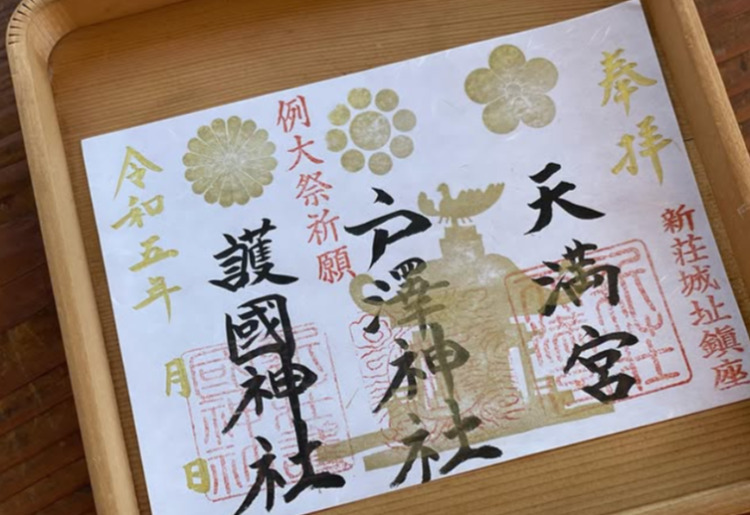 奉拝
新荘城址鎮座
天満宮
戸澤神社
例大祭祈願
護國神社
令和五年 月 日